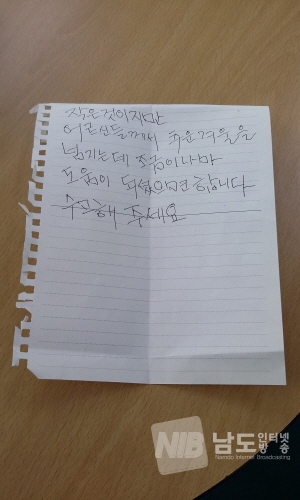 작은것이지만
어르신들께서 추운겨울을
넘기는데 조금이나마
도움이 되셨으면 합니다
수고해 주세요
NIB 남도 인터넷
방송
Namdo Internet Broadcasting